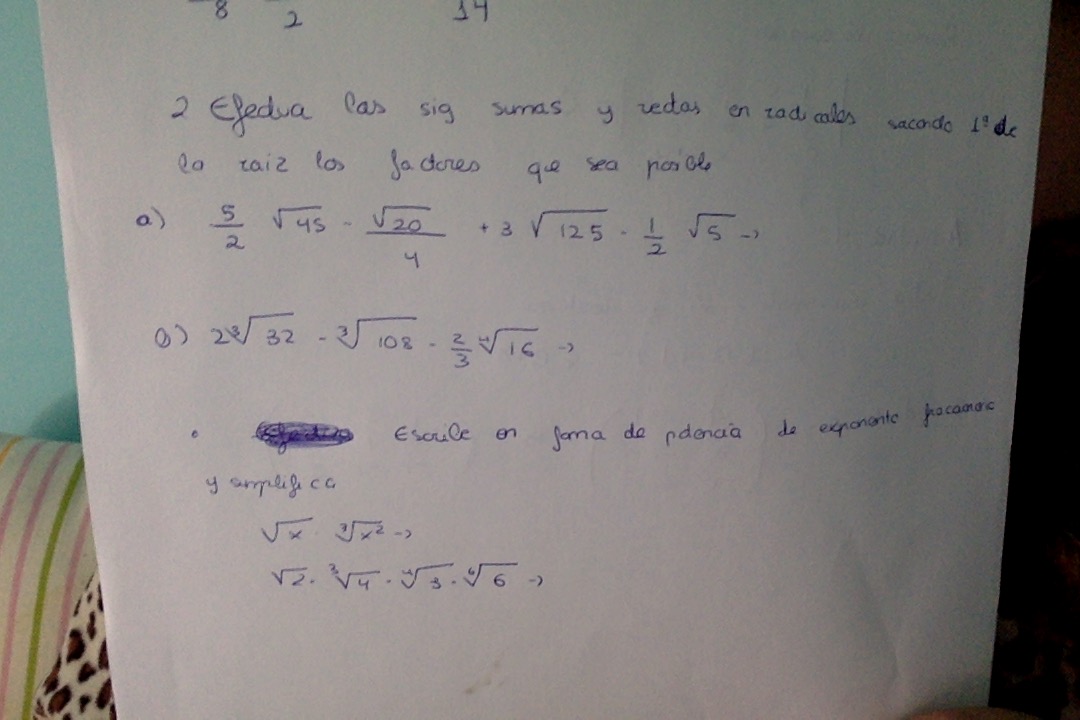 8 2 14
2 Efectua las sig sumas y restas en radicales sacando 1º de
la raiz los factores que sea posible
a) 5/2 √45 - √20/4 + 3 √125 - 1/2 √5 ->
b) 2 ∛32 - ∛108 - 2/3 ∜16 ->
• Escribe en forma de potencia de exponente
y simplifica
√x · ∛x² ->
√2 · ∛4 · ∜3 · ⁶√6 ->